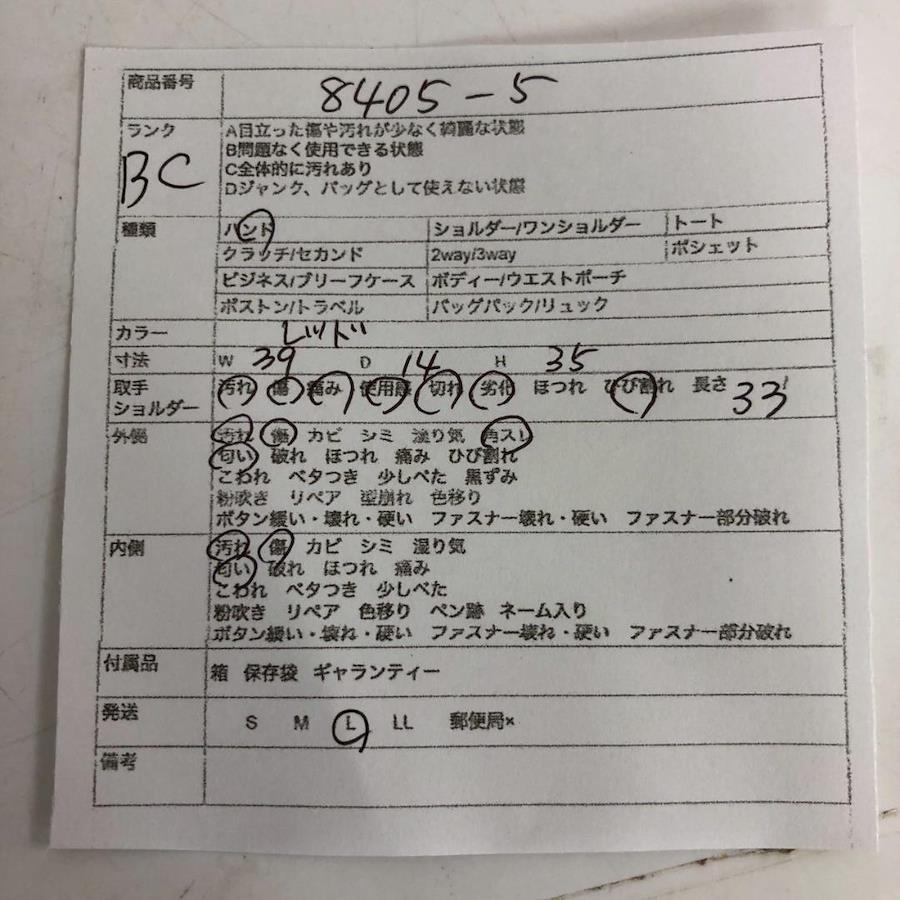 商品番号 8405-5
ランク BC
A目立った傷や汚れが少なく綺麗な状態
B問題なく使用できる状態
C全体的に汚れあり
Dジャンク、バッグとして使えない状態
種類 ハンド ショルダー/ワンショルダー トート
クラッチ/セカンド 2way/3way ポシェット
ビジネス/ブリーフケース ボディー/ウエストポーチ
ボストン/トラベル バッグパック/リュック
カラー レッド
寸法 W 39 D 14 H 35
取手 汚れ 傷 痛み 使用感 切れ 劣化 ほつれ ひび割れ 長さ 33
ショルダー
外側 汚れ 傷 カビ シミ 湿り気 角スレ
匂い 破れ ほつれ 痛み ひび割れ
こわれ ベタつき 少しべた 黒ずみ
粉吹き リペア 型崩れ 色移り
ボタン緩い・壊れ・硬い ファスナー壊れ・硬い ファスナー部分破れ
内側 汚れ 傷 カビ シミ 湿り気
匂い 破れ ほつれ 痛み
こわれ ベタつき 少しべた
粉吹き リペア 色移り ペン跡 ネーム入り
ボタン緩い・壊れ・硬い ファスナー壊れ・硬い ファスナー部分破れ
付属品 箱 保存袋 ギャランティー
発送 S M L LL 郵便局×
備考